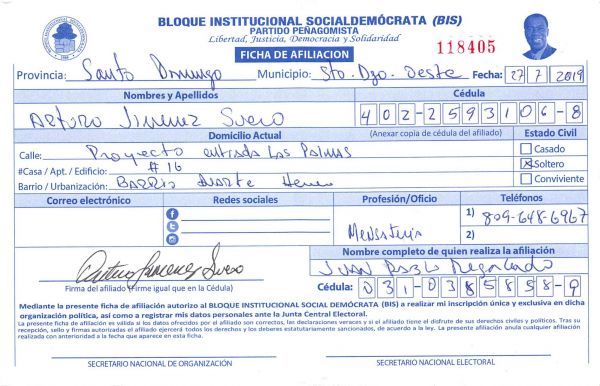 BLOQUE INSTITUCIONAL SOCIALDEMÓCRATA (BIS)
PARTIDO PEÑAGOMISTA
Libertad, Justicia, Democracia y Solidaridad
FICHA DE AFILIACION
118405
Provincia: Santo Domingo Municipio: Sto. Dgo. oeste Fecha: 27 7 2019
Nombres y Apellidos Cédula
Arturo Jimenez Suero 402-2593106-8
Domicilio Actual (Anexar copia de cédula del afiliado) Estado Civil
Calle: Proyecto entrada Las Palmas Casado
#Casa / Apt. / Edificio: #16 Soltero
Barrio / Urbanización: Barrio Duarte Conviviente
Correo electrónico Redes sociales Profesión/Oficio Teléfonos
Mensajeria 1) 809-648-6967
2)
Nombre completo de quien realiza la afiliación
Arturo Jimenez Suero Juan Pablo
Firma del afiliado (Firme igual que en la Cédula) Cédula: 031-0385858-9
Mediante la presente ficha de afiliación autorizo al BLOQUE INSTITUCIONAL SOCIAL DEMÓCRATA (BIS) a realizar mi inscripción única y exclusiva en dicha
organización política, así como a registrar mis datos personales ante la Junta Central Electoral.
La presente ficha de afiliación es válida si los datos ofrecidos por el afiliado son correctos, las declaraciones veraces y si el afiliado tiene el disfrute de sus derechos civiles y politicos. Tras su
recepción, sello y firmas autorizadas el afiliado ejercerá todos los derechos y los deberes estatutariamente sancionados, de acuerdo a la ley. La presente afiliación anula cualquier afiliación
realizada con anterioridad a la fecha que aparece en esta ficha.
SECRETARIO NACIONAL DE ORGANIZACIÓN SECRETARIO NACIONAL ELECTORAL